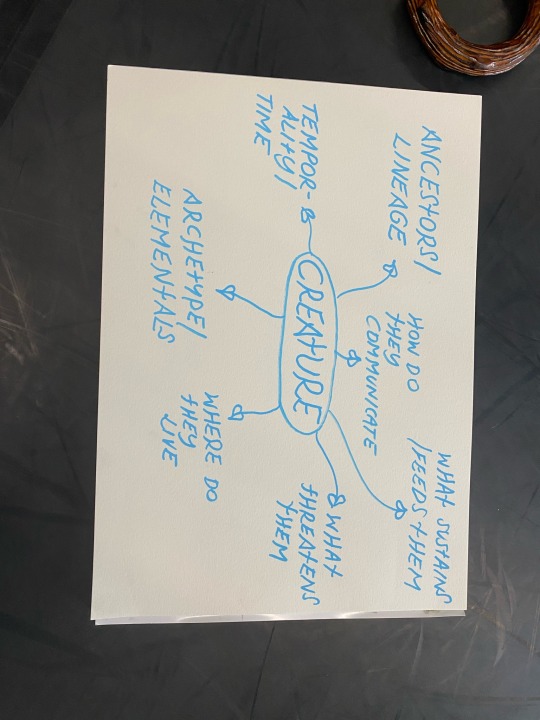 ANCESTORS/
LINEAGE
HOW DO
THEY
COMMUNICATE
WHAT SUSTAINS
/FEEDS THEM
TEMPOR-
ALITY/
TIME
CREATURE
WHAT
THREATENS
THEM
ARCHETYPE/
ELEMENTALS
WHERE DO
THEY
LIVE